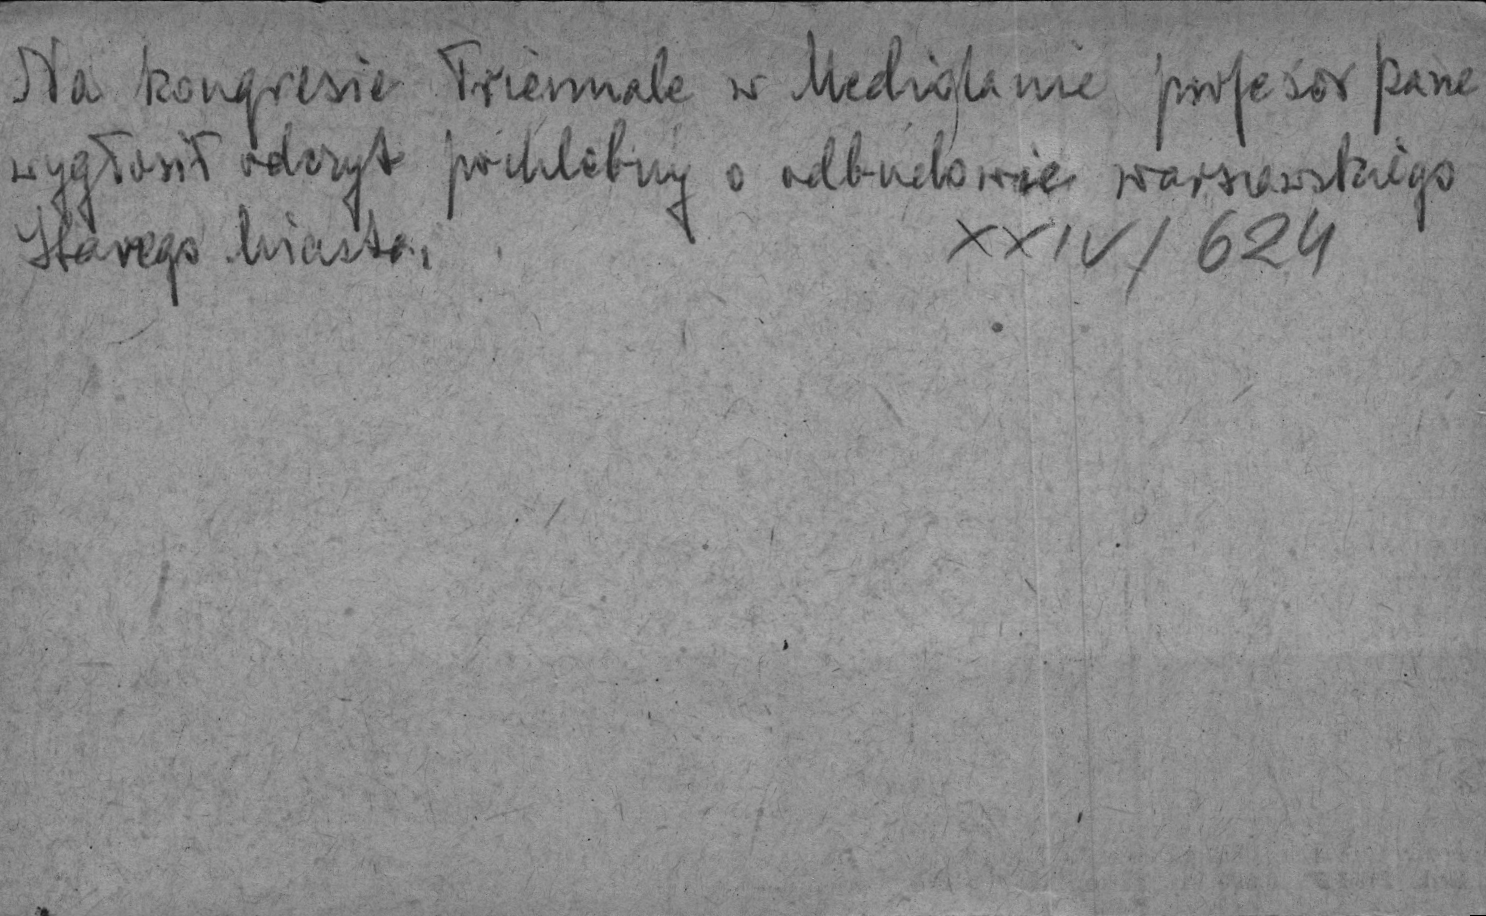 Na kongresie Triennale w Mediolanie profesor Pane
wygłosił odczyt pochlebny o odbudowie warszawskiego
Starego Miasta.
XXIV/624